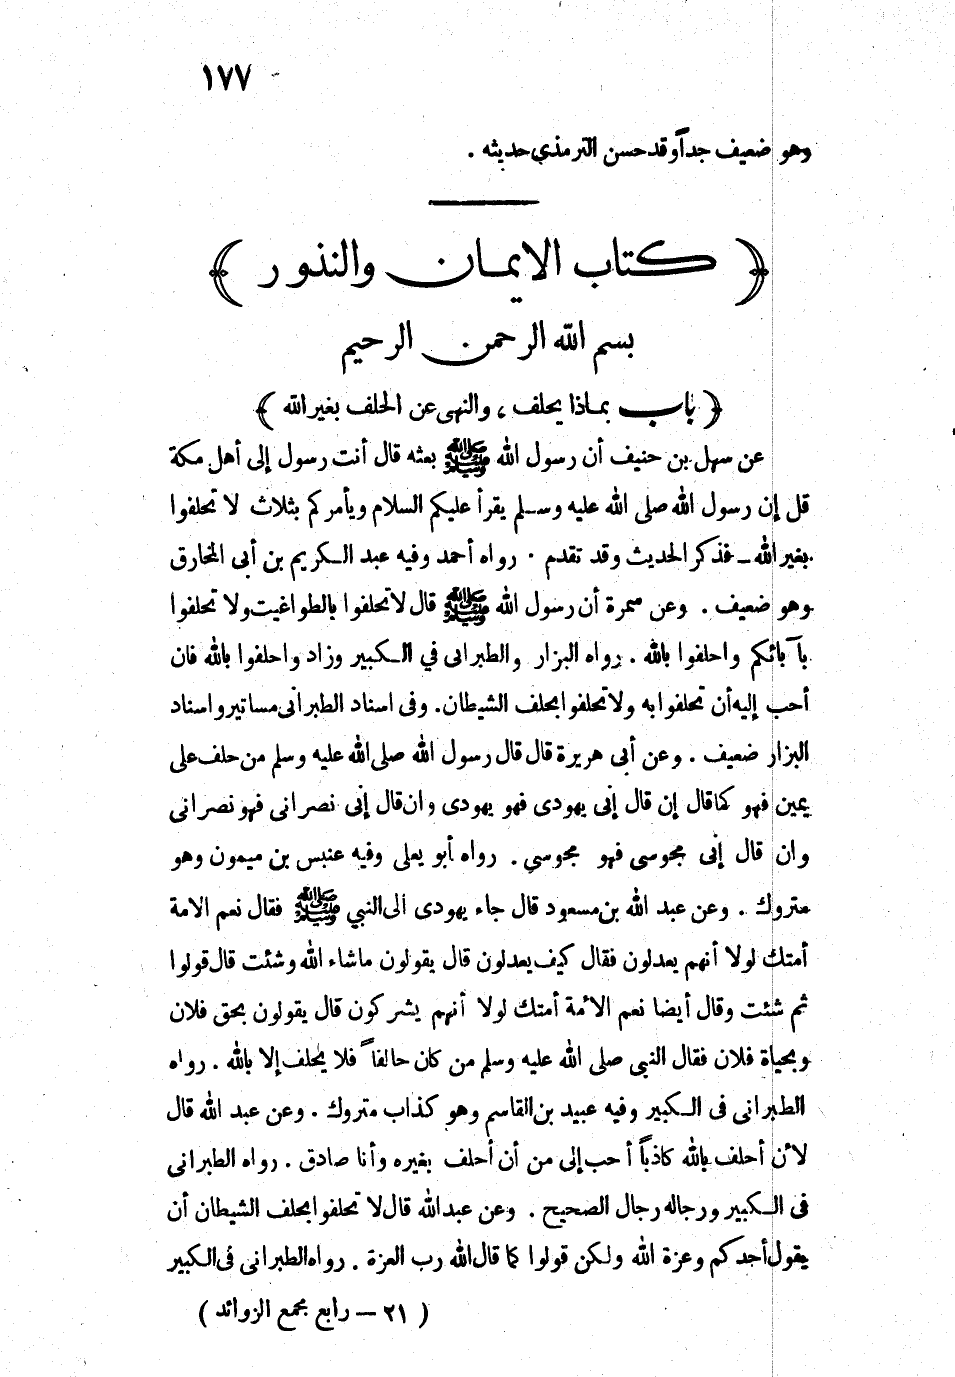 ١٧٧
وهو ضعيف جداً وقد حسن الترمذي حديثه .
﴿ كتاب الايمان والنذور ﴾
بسم الله الرحمن الرحيم
﴿ باب بماذا يحلف ، والنهى عن الحلف بغير الله ﴾
عن سهل بن حنيف أن رسول الله ﷺ بعثه قال أنت رسول إلى أهل مكة
قل إن رسول الله صلى الله عليه وسلم يقرأ عليكم السلام ويأمركم بثلاث لا تحلفوا
بغير الله ــ فذكر الحديث وقد تقدم . رواه أحمد وفيه عبد الكريم بن أبى المخارق
وهو ضعيف . وعن سمرة أن رسول الله ﷺ قال لا تحلفوا بالطواغيت ولا تحلفوا
بآبائكم واحلفوا بالله . رواه البزار والطبرانى في الكبير وزاد واحلفوا بالله فان
أحب إليه أن تحلفوا به ولا تحلفوا بحلف الشيطان. وفى اسناد الطبرانى مساتير واسناد
البزار ضعيف . وعن أبى هريرة قال قال رسول الله صلى الله عليه وسلم من حلف على
يمين فهو كما قال إن قال إنى يهودى فهو يهودى وان قال إنى نصرانى فهو نصرانى
وان قال إنى مجوسى فهو مجوسي . رواه أبو يعلى وفيه عنبس بن ميمون وهو
متروك . وعن عبد الله بن مسعود قال جاء يهودى الى النبي ﷺ فقال نعم الامة
أمتك لولا أنهم يعدلون فقال كيف يعدلون قال يقولون ماشاء الله وشئت قال قولوا
ثم شئت وقال أيضا نعم الأمة أمتك لولا أنهم يشركون قال يقولون بحق فلان
وبحياة فلان فقال النبى صلى الله عليه وسلم من كان حالفاً فلا يحلف إلا بالله . رواه
الطبرانى فى الكبير وفيه عبيد بن القاسم وهو كذاب متروك . وعن عبد الله قال
لأن أحلف بالله كاذباً أحب إلى من أن أحلف بغيره وأنا صادق . رواه الطبرانى
فى الكبير ورجاله رجال الصحيح . وعن عبد الله قال لا تحلفوا بحلف الشيطان أن
يقول أحدكم وعزة الله ولكن قولوا كما قال الله رب العزة . رواه الطبرانى فى الكبير
( ٢١ — رابع مجمع الزوائد )